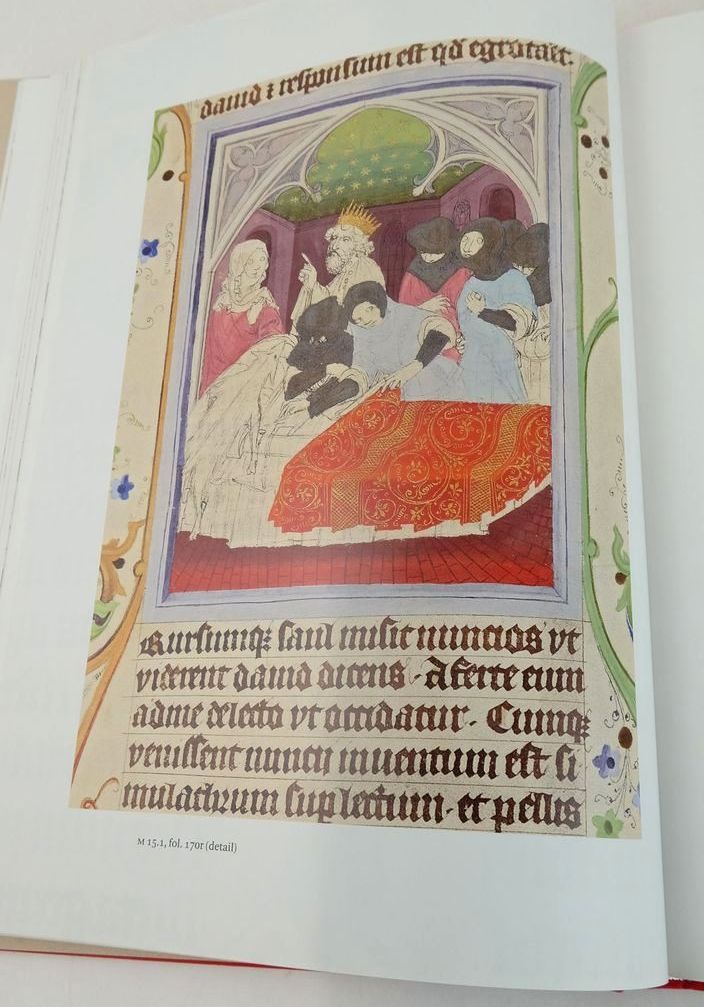 dauid ⁊ responsum est qd egrotaret.
Rursumqȝ saul misit nuncios vt
viderent dauid dicens · Afferte eum
ad me de lecto vt occidatur · Cumqȝ
venissent nuncij inuentum est si
mulachrum sup lectum · et pellis
M 15.1, fol. 170r (detail)